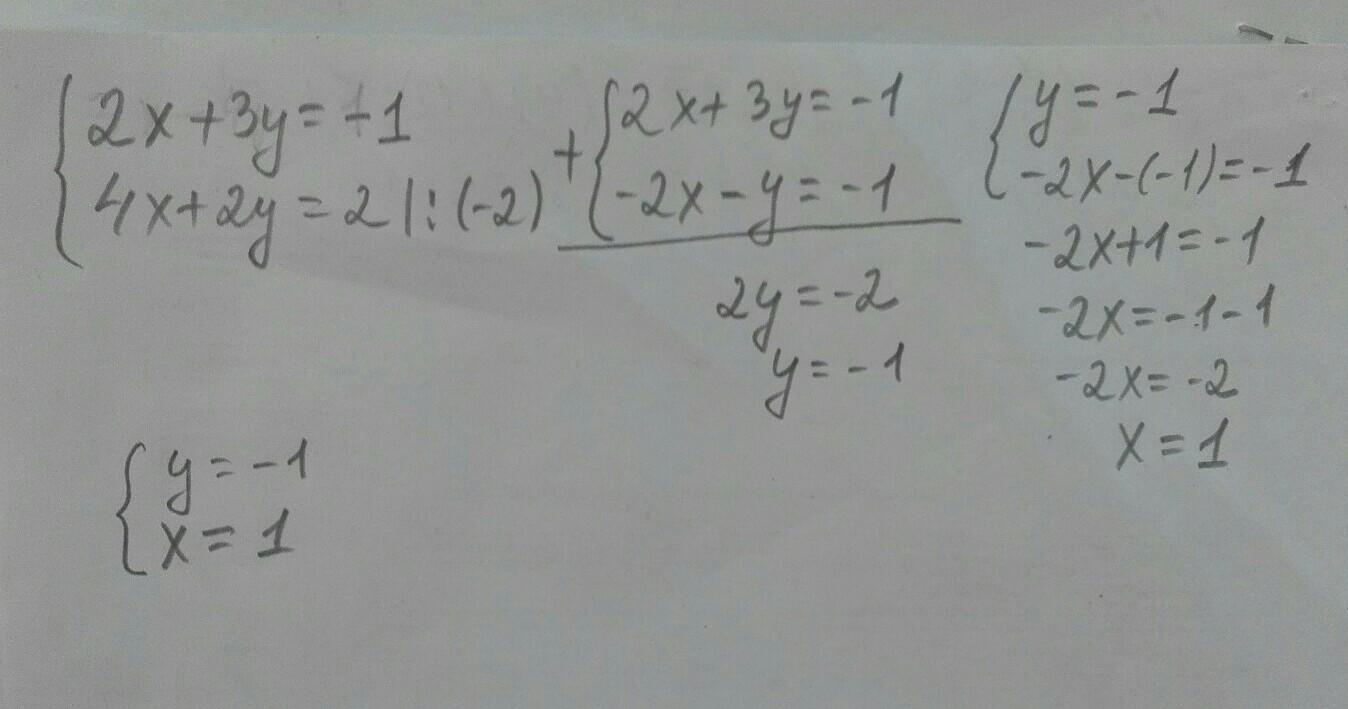 2x+3y=-1
4x+2y=2 |:(-2)
+ 2x+3y=-1
-2x-y=-1
2y=-2
y=-1
y=-1
-2x-(-1)=-1
-2x+1=-1
-2x=-1-1
-2x=-2
x=1
y=-1
x=1